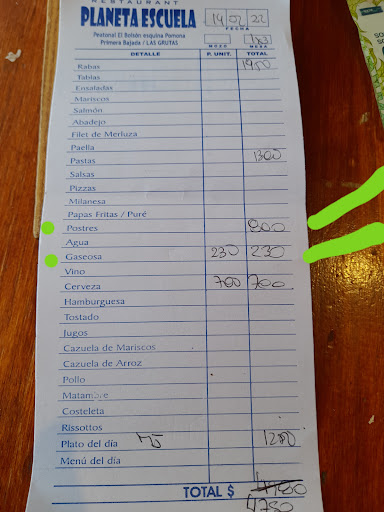 RESTAURANT
PLANETA ESCUELA
14 02 22
FECHA
Peatonal El Bolsón esquina Pomona
Primera Bajada / LAS GRUTAS
MOZO MESA
DETALLE P. UNIT. TOTAL
Rabas
Tablas
Ensaladas
Mariscos
Salmón
Abadejo
Filet de Merluza
Paella
Pastas 1300
Salsas
Pizzas
Milanesa
Papas Fritas / Puré
Postres
Agua
Gaseosa 230 230
Vino
Cerveza 700 700
Hamburguesa
Tostado
Jugos
Cazuela de Mariscos
Cazuela de Arroz
Pollo
Matambre
Costeleta
Rissottos
Plato del día
Menú del día
TOTAL $
4780